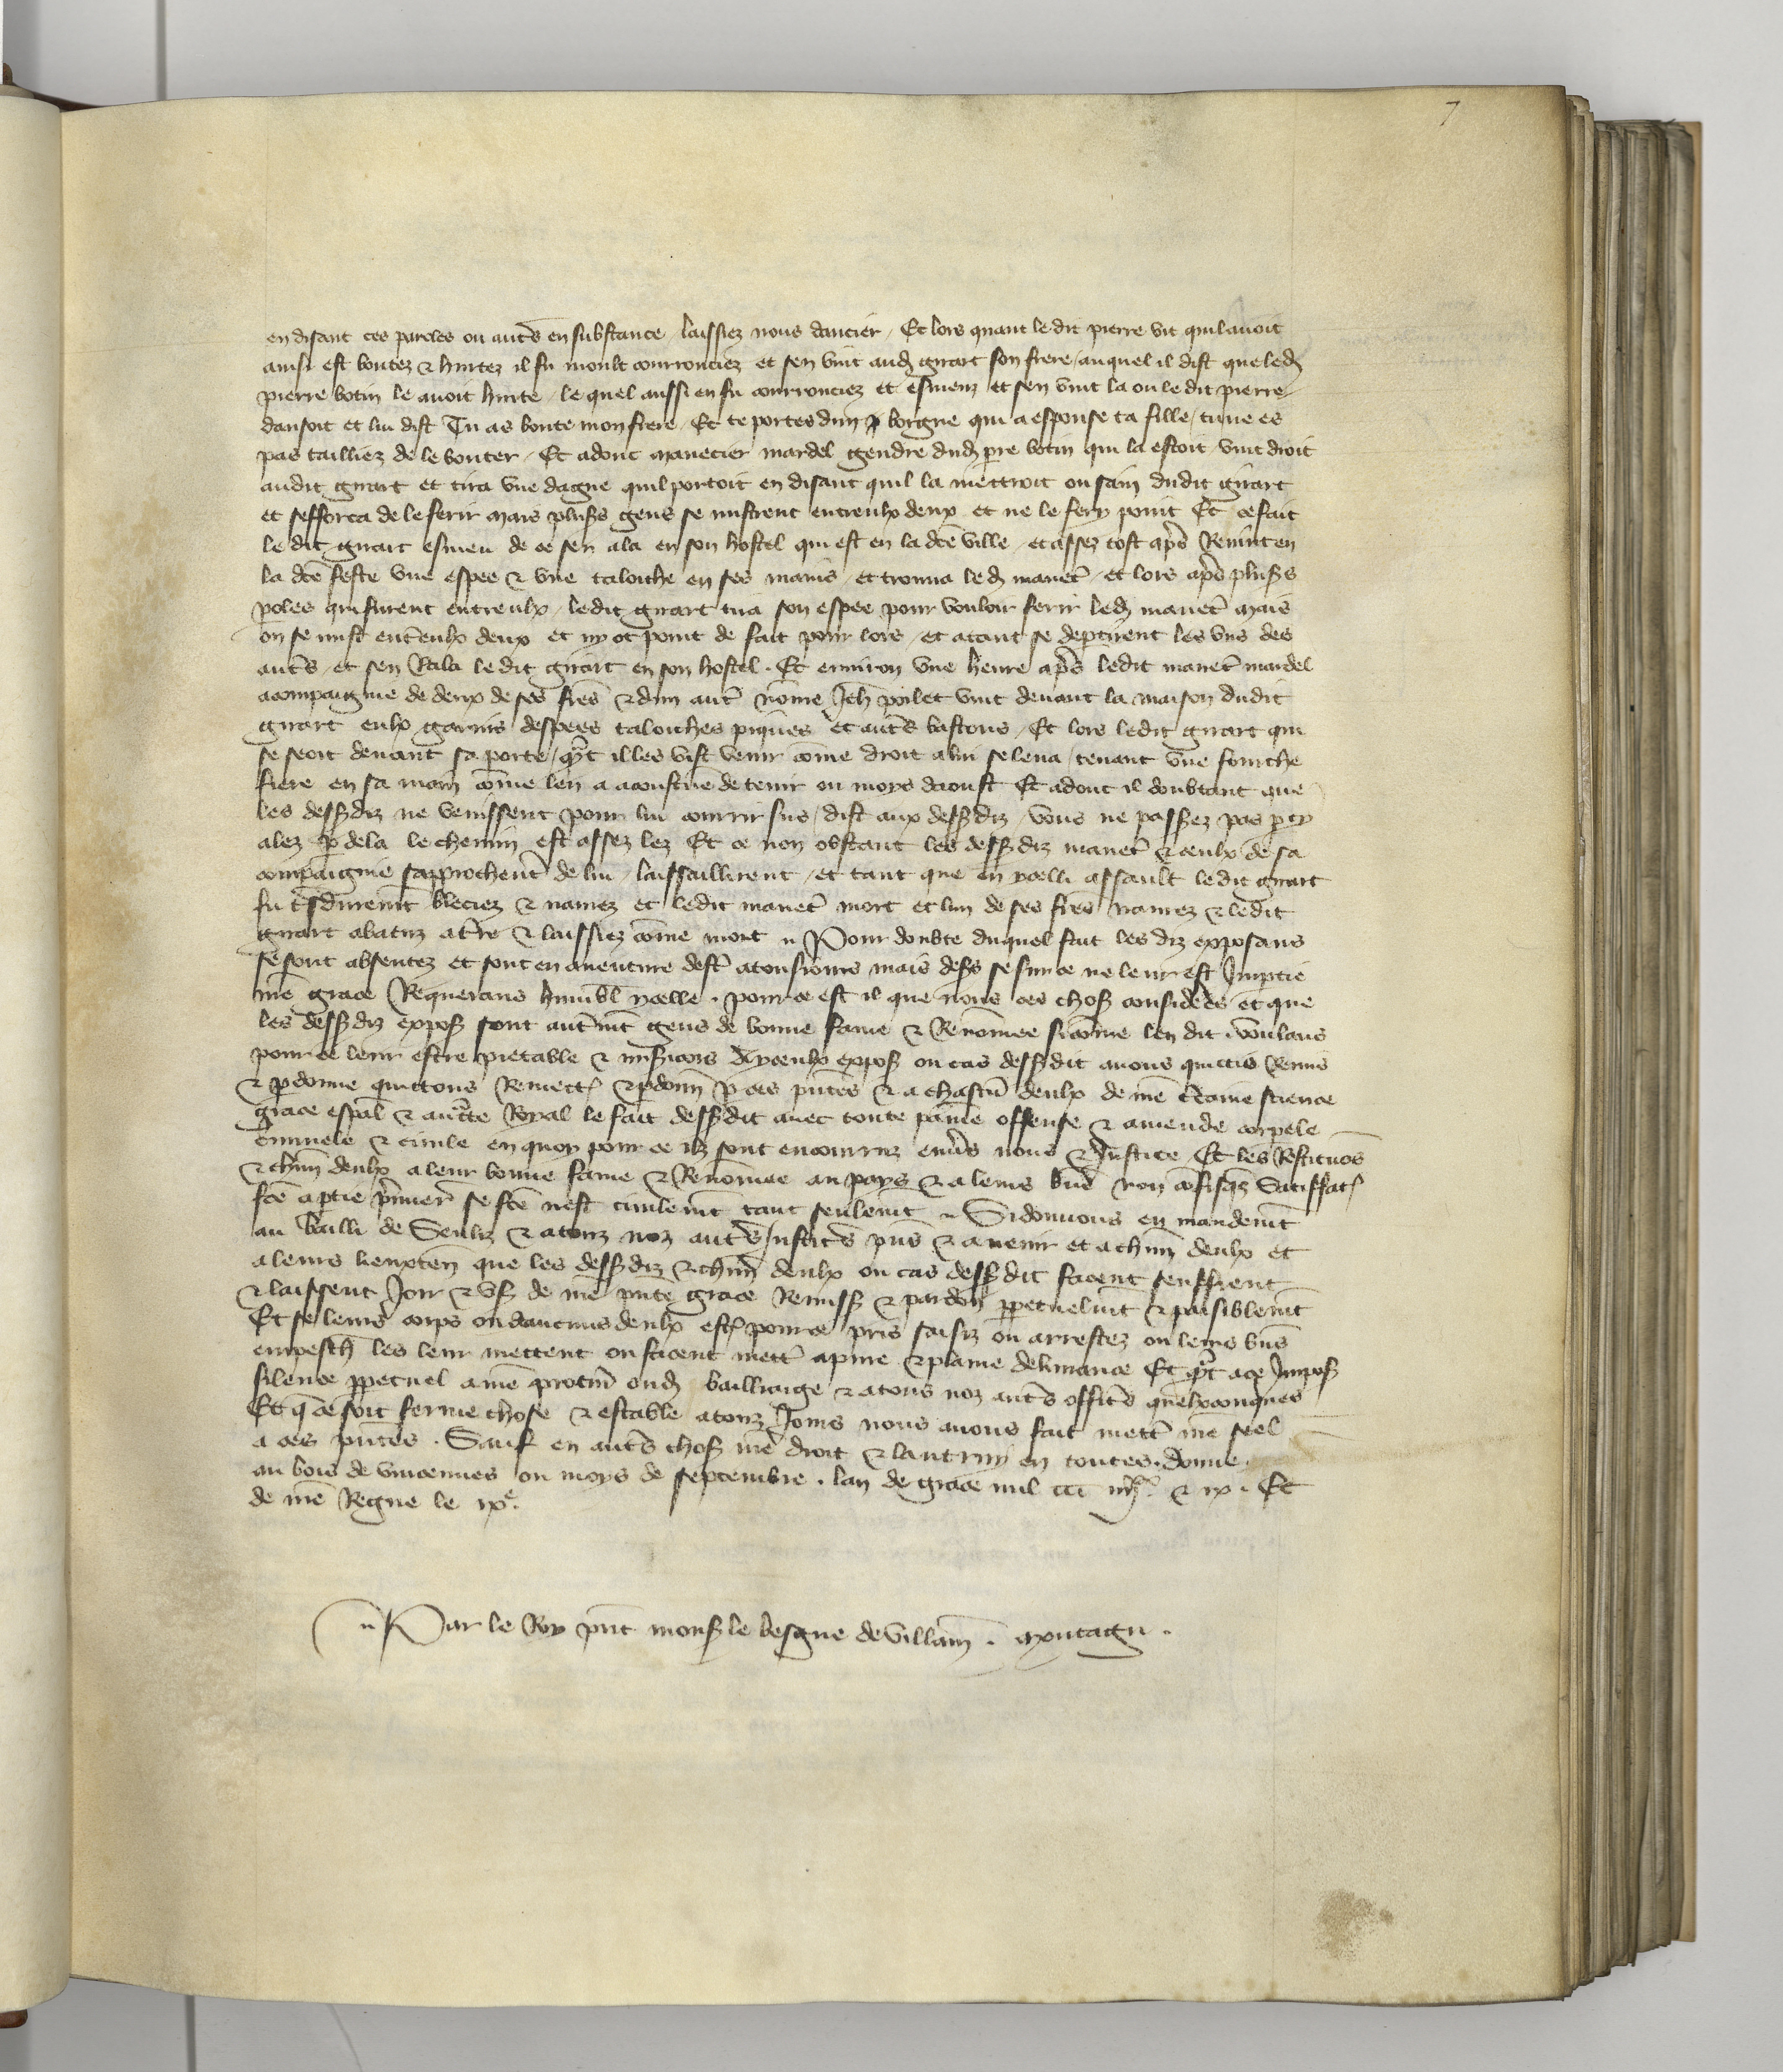 7
en disant ces paroles ou autͬs en substance / laissiez nous dancier / Et lors quant ledit pierre vit quil avoit
ainsi est boutez & hurtez il fu moult courrouciez et sen vint aud̶ girart son frere / auquel il dist que led̶
pierre botin le avoit hurte / le quel aussi en fu courrouciez et esmeuz et sen vint la ou le dit pierre
dansoit et lui dist Tu as boute mon frere / Et te portes dun borgne qui a espouse ta fille / tu ne es
pas tailliez de le bouter / Et adonc manecier mardel gendre dud̶ pͬre botin qui la estoit / vint droit
audit girart et tira une dague quil portoit en disant quil la mettroit ou sain dudit girart
et sefforca de le ferir mais plus̉s gens se mistrent entreulx deux et ne le fery point Et ce fait
le dit girart esmeu de ce sen ala en son hostel qui est en la dc̄e ville / et assez tost ap̄s Revint en
la dc̄e feste une espee & une taloiche en ses mains / et trouva le d̶ manec̄ / et lors ap̄s plus̉s
p̄oles qui furent entreulx / ledit girart tira son espee pour vouloir ferir led̶ manec̄ mais
on se mist ent̄eulx deux et ny ot point de fait pour lors / et atant se dep̄tirent les uns des
autͬs / et sen Rala le dit girart en son hostel . Et environ une heure ap̄s ledit manec̄ mardel
acompaignie de deux de ses fr̄es & dun aut̄ nōme Jeh̄ poilet vint devant la maison dudit
girart eulx garnis despees taloiches piques et autͬs bastons / Et lors ledit girart qui
se seoit devant sa porte / qͣnt il les vist venir cōme droit a lui se leva / tenant une fourche
fiere en sa main cōme len a acoustume de tenir ou moys daoust Et adonc il doubtant que
les dess̉diz ne venissent pour lui courir sus / dist aux dess̉diz / vous ne passez pas p̄ cy
alez p̄ dela le chemin est assez lez Et ce non obstant les dess̉diz manec̄ & ceulx de sa
compaignie sapprochent̄ de lui / lassaillirent / et tant que en ycelli assault ledit girart
fu t̄sdurem̄t bleciez & navrez et ledit manec̄ mort et lun de ses fr̄es navrez & ledit
girart abatuz a t̄re & laissiez cōme mort // Pour doubte duquel fait les diz exposans
se sont absentez et sont en aventure dest̄ a tousiours mais des̉s se sur ce ne leur est Imp̄tie
nr̄e grace Requerans humbl̄ ycelle . pour ce est il que nous ces chos̉ considerees et que
les dess̉diz expos̉ sont autͬm̄t gens de bonne fame & Renōmee si cōme len dit . voulans
pour ce leur estre pietable & mis̉icors A yceulx expos̉ ou cas dess̉dit avons quictie Remis
& p̄donne quittons Remett̄ & p̄donn̄ p̄ ces p̄ntes & a chascū deulx de nr̄e c̄taine science
grace esp̄al & auct̄te Royal le fait dess̉dit avec toute paine offense & amende corp̄ele
c̄minele & civile en quoy pour ce ilz sont encouruz env̄s nous & Justice / Et les Restituōs
& chūn deulx a leur bonne fame & Renōmee au pays & a leurs biēs non cōfisqͤz Satiffac̄
fc̄e a p̄tie p̄mier̄ se fc̄e nest civilem̄t tant seulem̄t // Si donnons en mandem̄t
au bailli de Senliz & a touz noz autͬs Justic̄s p̄ns & avenir et a chūn deulx et
a leurs lieuxten̄ que les dess̉diz & chūn deulx ou cas dess̉dit facent seuffrent
& laissent Joir & us̉ de nr̄e p̄nte grace Remiss̉ & pardon̄ p̄petuelm̄t & paisiblem̄t
Et se leurs corps ou daucuns deulx est̄ pour ce pris saisiz ou arrestez ou leurs bn̄s
empesch̄ les leur mettent ou facent mett̄ a pure & plaine delivrance Et qͣnt a ce Impos̉
silence p̄petuel a nr̄e procur̄ oud̶ bailliaige & a tous noz autͬs offic̄s quelxconques
Et q̄ ce soit ferme chose & estable a touz Jours nous avons fait mett̄ nr̄e seel
a ces p̄ntes . Sauf en autͬs chos̉ nr̄e droit & lautruy en toutes . donne
au bois de vincennes ou moys de septembre . lan de grace mil ccc iiij.ˣˣ & ix . Et
de nr̄e Regne le ixᵉ.
// Par le Roy p̄nt mons̉ le besgue de villain̄ . Montagu .